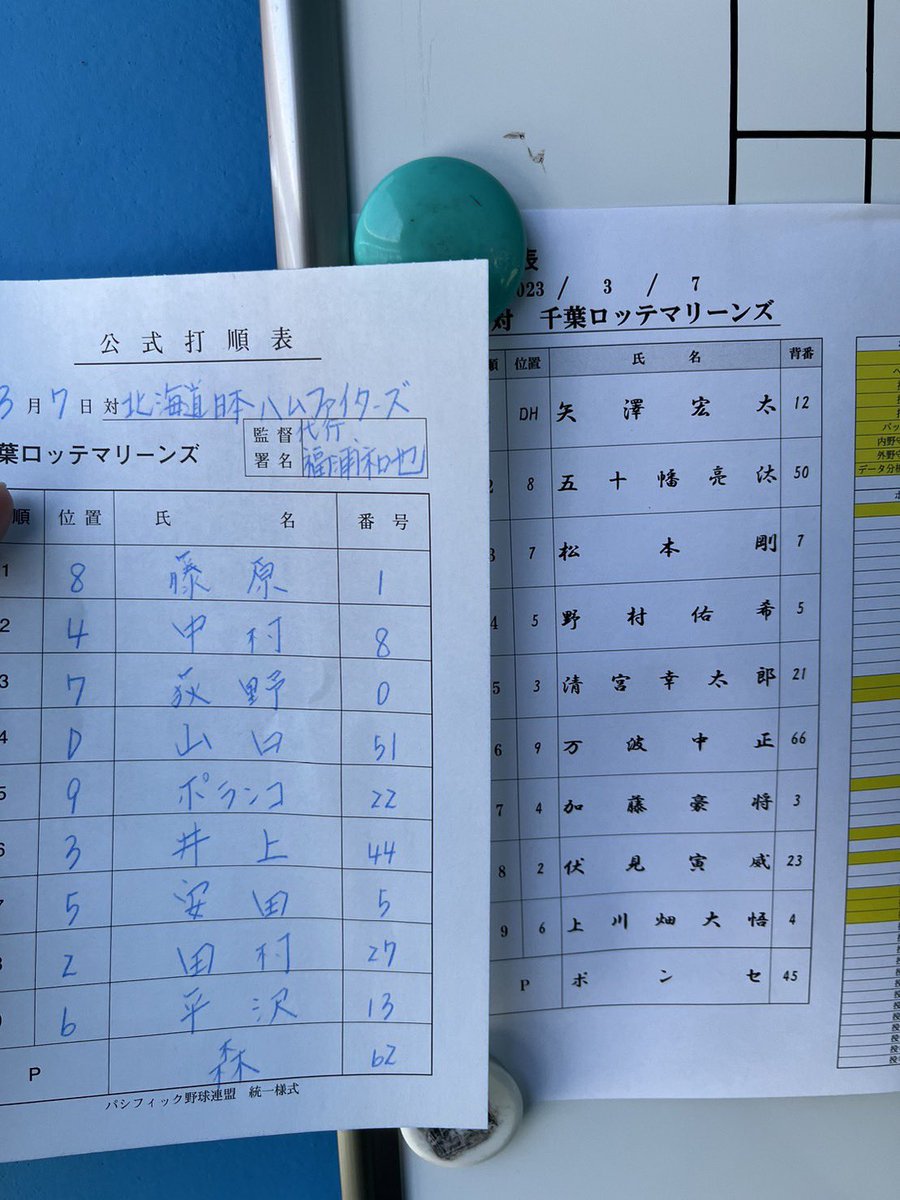 公式打順表
3月7日対北海道日本ハムファイターズ
葉ロッテマリーンズ
監督代行、
署名 福浦和也
順 位置 氏名 番号
1 8 藤原 1
2 4 中村 8
3 7 荻野 0
4 D 山口 51
5 9 ポランコ 22
6 3 井上 44
7 5 安田 5
8 2 田村 27
6 平沢 13
P 森 62
パシフィック野球連盟 統一様式
表
023 / 3 / 7
対 千葉ロッテマリーンズ
順 位置 氏名 背番
DH 矢澤宏太 12
2 8 五十幡亮汰 50
3 7 松本剛 7
4 5 野村佑希 5
5 3 清宮幸太郎 21
6 9 万波中正 66
7 4 加藤豪将 3
8 2 伏見寅威 23
9 6 上川畑大悟 4
P ポンセ 45
バッ
内野守
外野守
データ分析